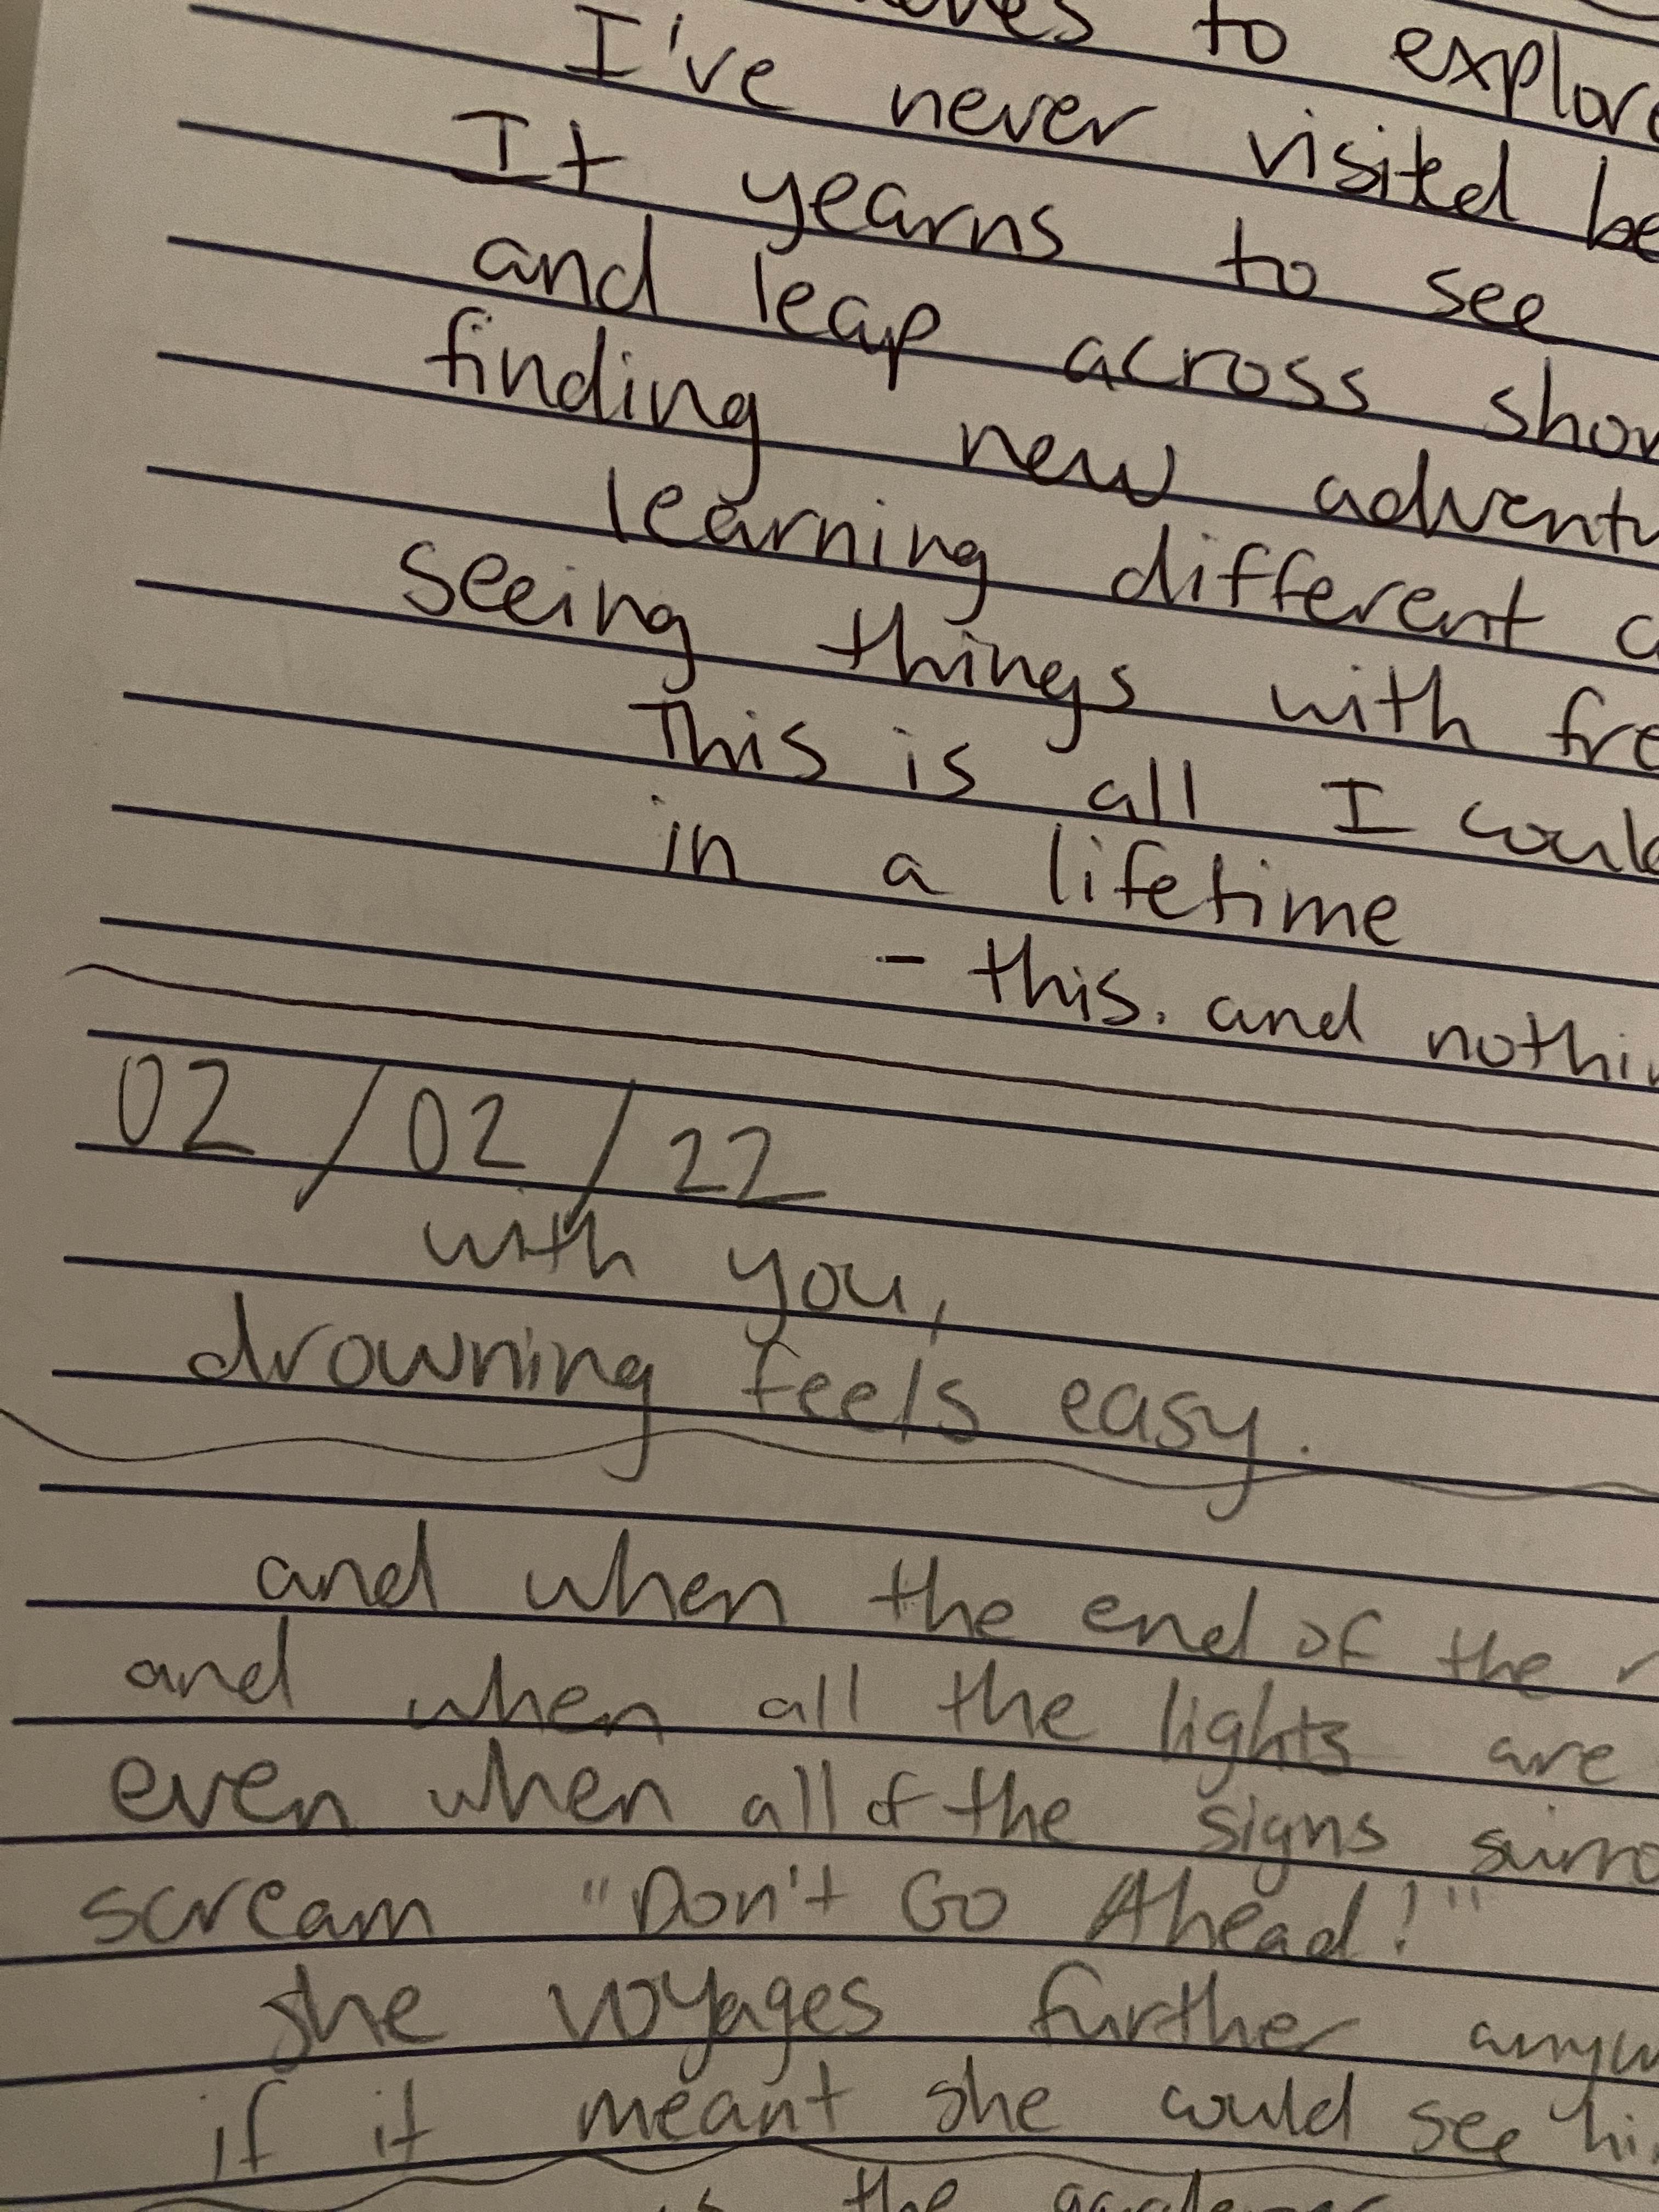 to explore
I've never visited be
It yearns to see
and leap across shor
finding new adventu
learning different c
seeing things with fre
This is all I could
in a lifetime
- this. and nothin
02/02/22
with you,
drowning feels easy.
and when the end of the r
and when all the lights are
even when all of the signs surro
scream "Don't Go Ahead!"
she voyages further anyw
if it meant she could see hi
the gardener